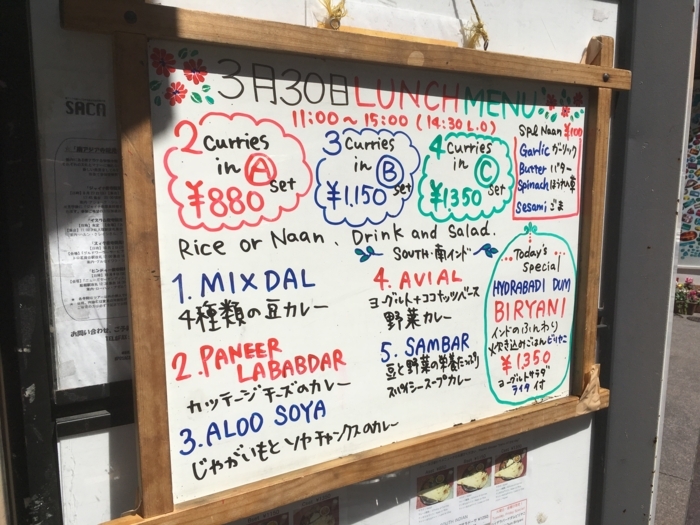 3月30日 LUNCH MENU
11:00~15:00 (14:30 L.O)
2 Curries
in A
¥880 set
3 Curries
in B
¥1.150 set
4 Curries
in C
¥1350 set
Spl Naan ¥100
Garlic ガーリック
Butter バター
Spinach ほうれん草
Sesami ごま
Rice or Naan、Drink and Salad.
1. MIX DAL
4種類の豆カレー
2. PANEER
LABABDAR
カッテージチーズのカレー
3. ALOO SOYA
じゃがいもとソヤチャンクスのカレー
SOUTH・南インド
4. AVIAL
ヨーグルト+ココナッツベース
野菜カレー
5. SAMBAR
豆と野菜の栄養たっぷり
スパイシースープカレー
Today's
special
HYDRABADI DUM
BIRYANI
インドのふんわり
炊き込みごはんビリヤニ
¥1.350
ヨーグルトサラダ
ライタ付